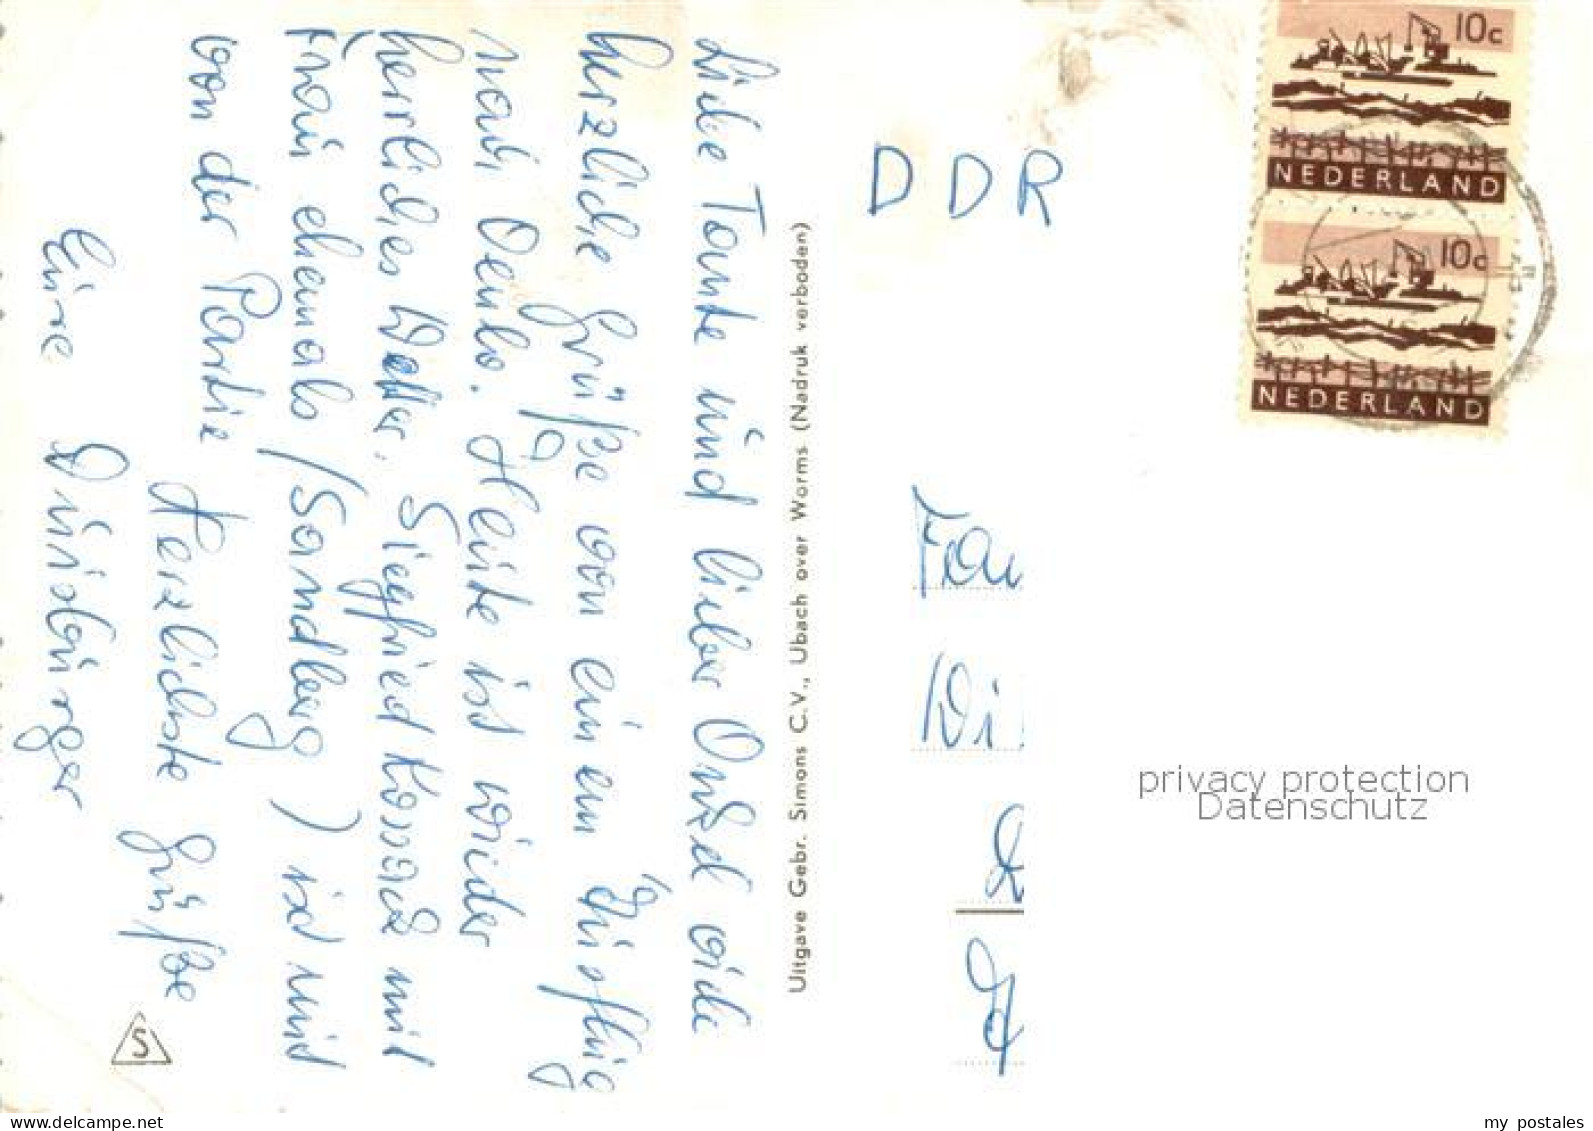 Liebe Tante und lieber Onkel viele
herzliche Grüße von einem Ausflug
nach Venlo. Heute ist wieder
herrliches Wetter. Siegfried Kossack mit
Frau ehemals (Sandberg) ist mit
von der Partie
Herzlichste Grüße
Eure Duisburger
S
Uitgave Gebr. Simons C.V., Ubach over Worms (Nadruk verboden)
DDR
10c
NEDERLAND
10c
NEDERLAND
Fam
Wi
privacy protection
Datenschutz
www.delcampe.net
my postales